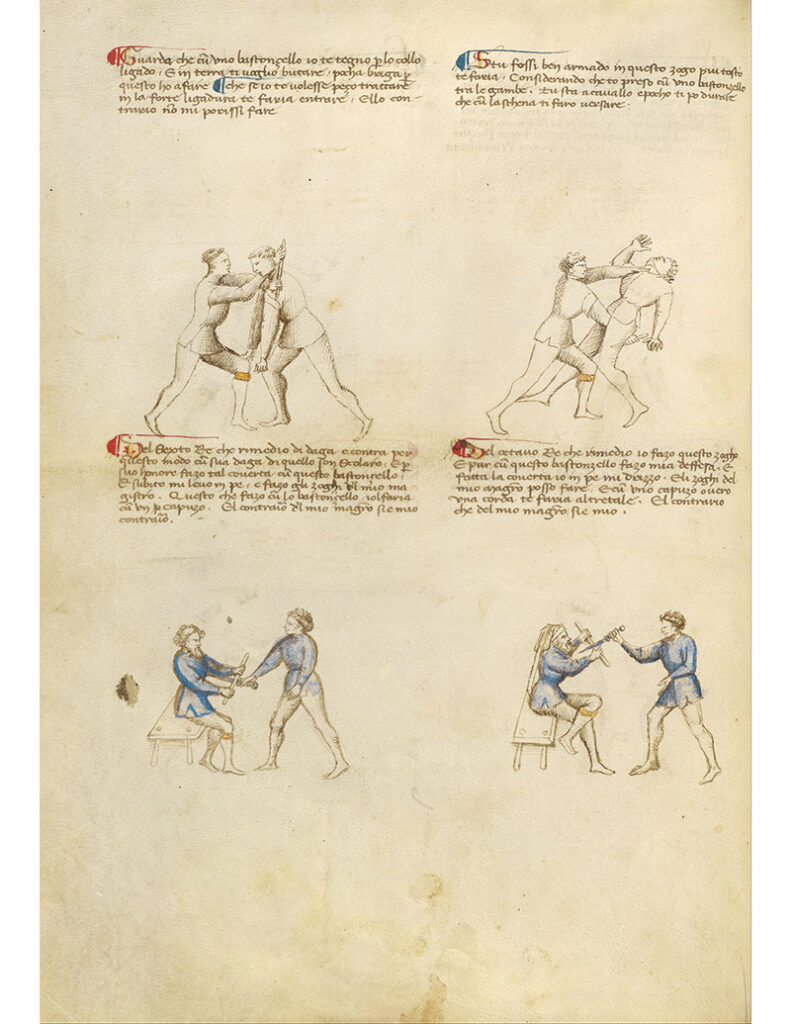 Guarda che cu uno bastonzello io te tegno p lo collo
ligado, E in terra ti voglio butare, pocha briga p
questo ho a fare che se io te volesse pezo trattare
in la forte ligadura te faria entrare, E lo con-
trario no mi porissi fare
S tu fossi ben armado in questo zogo piu tosto
te faria, Considerando che to preso cu uno bastonzello
tra le gambe, tu sta a cavallo e pocho ti po durare
che cu la schena ti faro versare.
Del sexto Re che rimedio di daga e contra per
questo modo cu sua daga di quello son scolaro, E p
suo honore fazo tal coverta cu questo bastoncello
E subito mi levo in pe, e fazo gli zoghi dl mio ma
gistro. Questo che fazo cu lo bastoncello io l faria
cu un capuzo. El contrario dl mio magro si e mio
contrario.
Del octavo Re che rimedio io fazo questo zogho
E pur cu questo bastonzello fazo mia deffesa. E
fatta la coverta io in pe mi drizzo. E li zoghi del
mio magro posso fare. E cu uno capuzo overo
una corda te faria altretale. El contrario
che del mio magro si e mio.